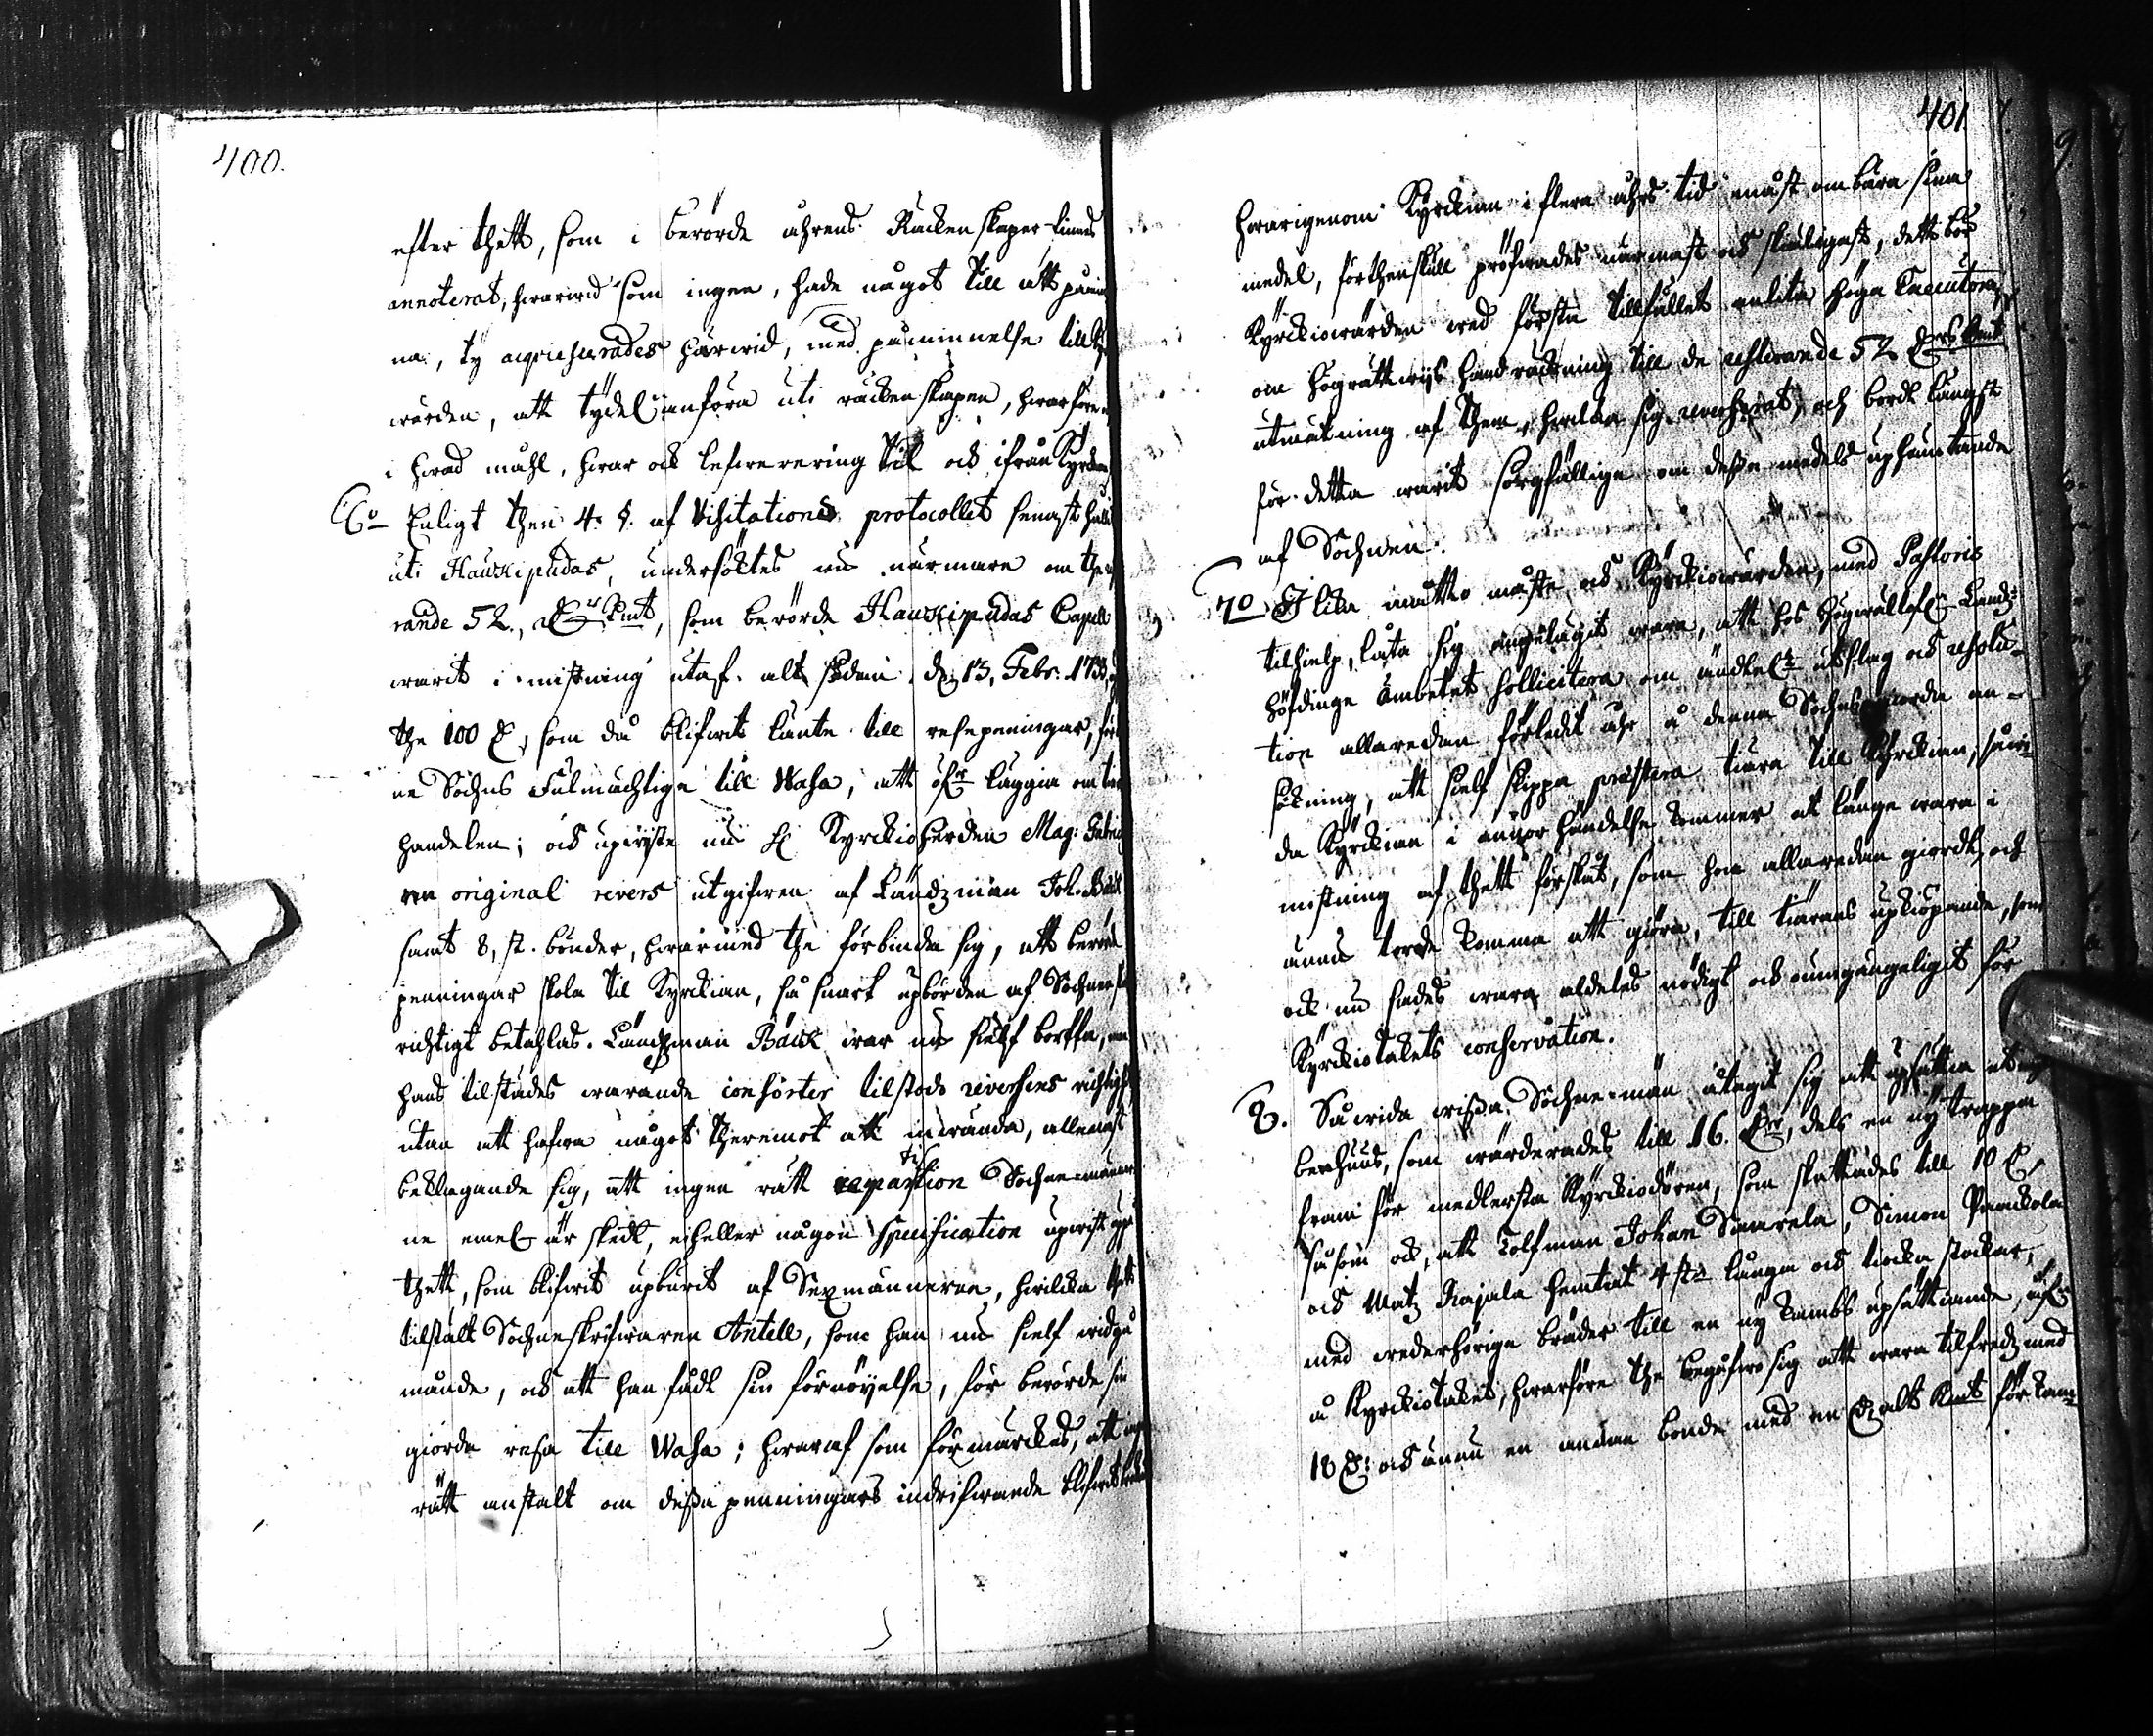 400.
efter thett, som i berörde åhrens Räckenskaper finnes
annoterat, hwarwid som ingen, hade något till att påmin
na, ty acquiescerades härwid, med påminnelse till
wärden, att tydel. anföra uti räckenskapen, hwarföre
i hwad måhl, hwar och lefwerering till och ifrån Kyrckan
6o Enligt then 4. §. af Visitations protocollet senast hållit
uti Haukipudas, undersöktes nu närmare om the
rande 52. D:r Kmt, som berörde Haukipudas Capell
warit i mistning utaf. alt sedan d. 13. Febr. 173
the 100 D. som då blifwit länte till resepeningar, för
ne Sochns Fulmächtige till Wasa, att öf:r läggia om
handelen; och upwiste nu H. Kyrckioherden Mag:
en original revers utgifwen af Ländzman Joh. Bäck
samt 8, st. bönder, hwarmed the förbinda sig, att berörde
penningar skola til Kyrckian, så snart upbörden af Sochnen
richtigt betahlas. Ländzman Bäck war nu sielf borta, men
hans tilstädes warande consorter tilstodo reversens richtighet
utan att hafwa något theremot att inwända, allenast
beklagande sig, att ingen rätt repartition Sochnemännen
ne emel. är skedt, eij heller någon specification upwist
thett, som blifwit upburit af Sexmännerne, hwilcka thet
tilstält Sochneskrifwaren Antell, som han nu sielf widgå
mände, och att han fådt sin förnöyelse, för berörde sin
giorda resa till Wasa; hwaraf som förmärckes, att ing
rätt anstalt om dessa penningars indrifwande blifwit
401.
hwarigenom Kyrckian i flera åhrs tid måst ombära sina
medel, förthenskull pröfwades närmast och skiäligast, dett bör
Kyrckiowärden wed första tillfället anlita höga Executorn
om högrättwijs handräckning till de resterande 52 D:rs Kmt
utmätning af them, hwilka sig reverserat, och bordt längst
för detta warit sorgfällige om dessa medels uphämtande
af Sochnen.
7o I lika måtto måste och Kyrckiowärden, med Pastoris
tilhielp, låta sig angelägit wara, att hos Högwällofl. Lands-
höfdinge Ämbetet sollicitera om ändtel. utslag och resolu-
tion allaredan förledit åhr å denna Sochns giorda an-
sökning, att sielf skippa præstera tiära till Kyrckian, hwar
da Kyrckian i annor händelse kommer at länge wara i
mistning af thett förskåt, som hon allaredan giordt, och
ännu torde komma att giöra, till tiärans upkiöpande, som
och nu hades wara aldeles nödigt och oumgängeligit för
Kyrckiotakets conservation.
8. Så wida wissa Sochne-män åtagit sig att upsättia ett
benhuus, som wärderades till 16. D:r, dels en ny trappa
fram för medlersta Kyrckiodören, som skattades till 10 D.
så som och, att Tolfman Johan Simrela, Simon Pamckola
och Matz Rajala hemtat 4 st. långa och tiocka stockar,
med wederhörige bräder till en ny kambs upsättiande, uf:r
å Kyrckiotaket, hwarföre the begifwo sig att wara tilfredz med
18 D: och ännu en annan bonde med en D. alt Kmt för kam-